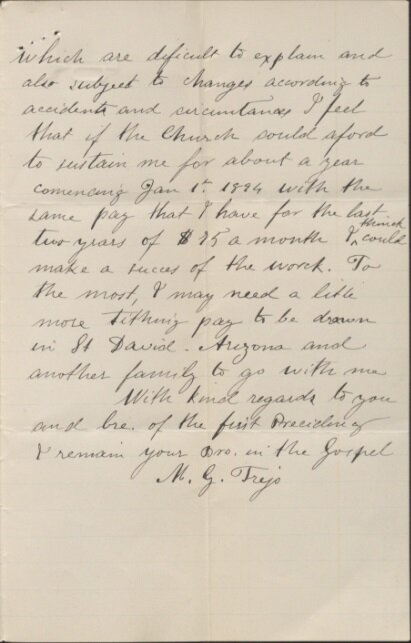 which are dificult to explain and
also subject to changes according to
accidents and circumstances I feel
that if the Church could aford
to sustain me for about a year
comencing Jan 1st 1894 with the
same pay that I have for the last
two years of $25 a month I think could
make a succes of the work. To
the most, I may need a little
more tithing pay to be drawn
in St David. Arizona and
another family to go with me
With kind regards to you
and bre. of the first Precidency
I remain your Bro. in the Gospel
M. G. Trejo